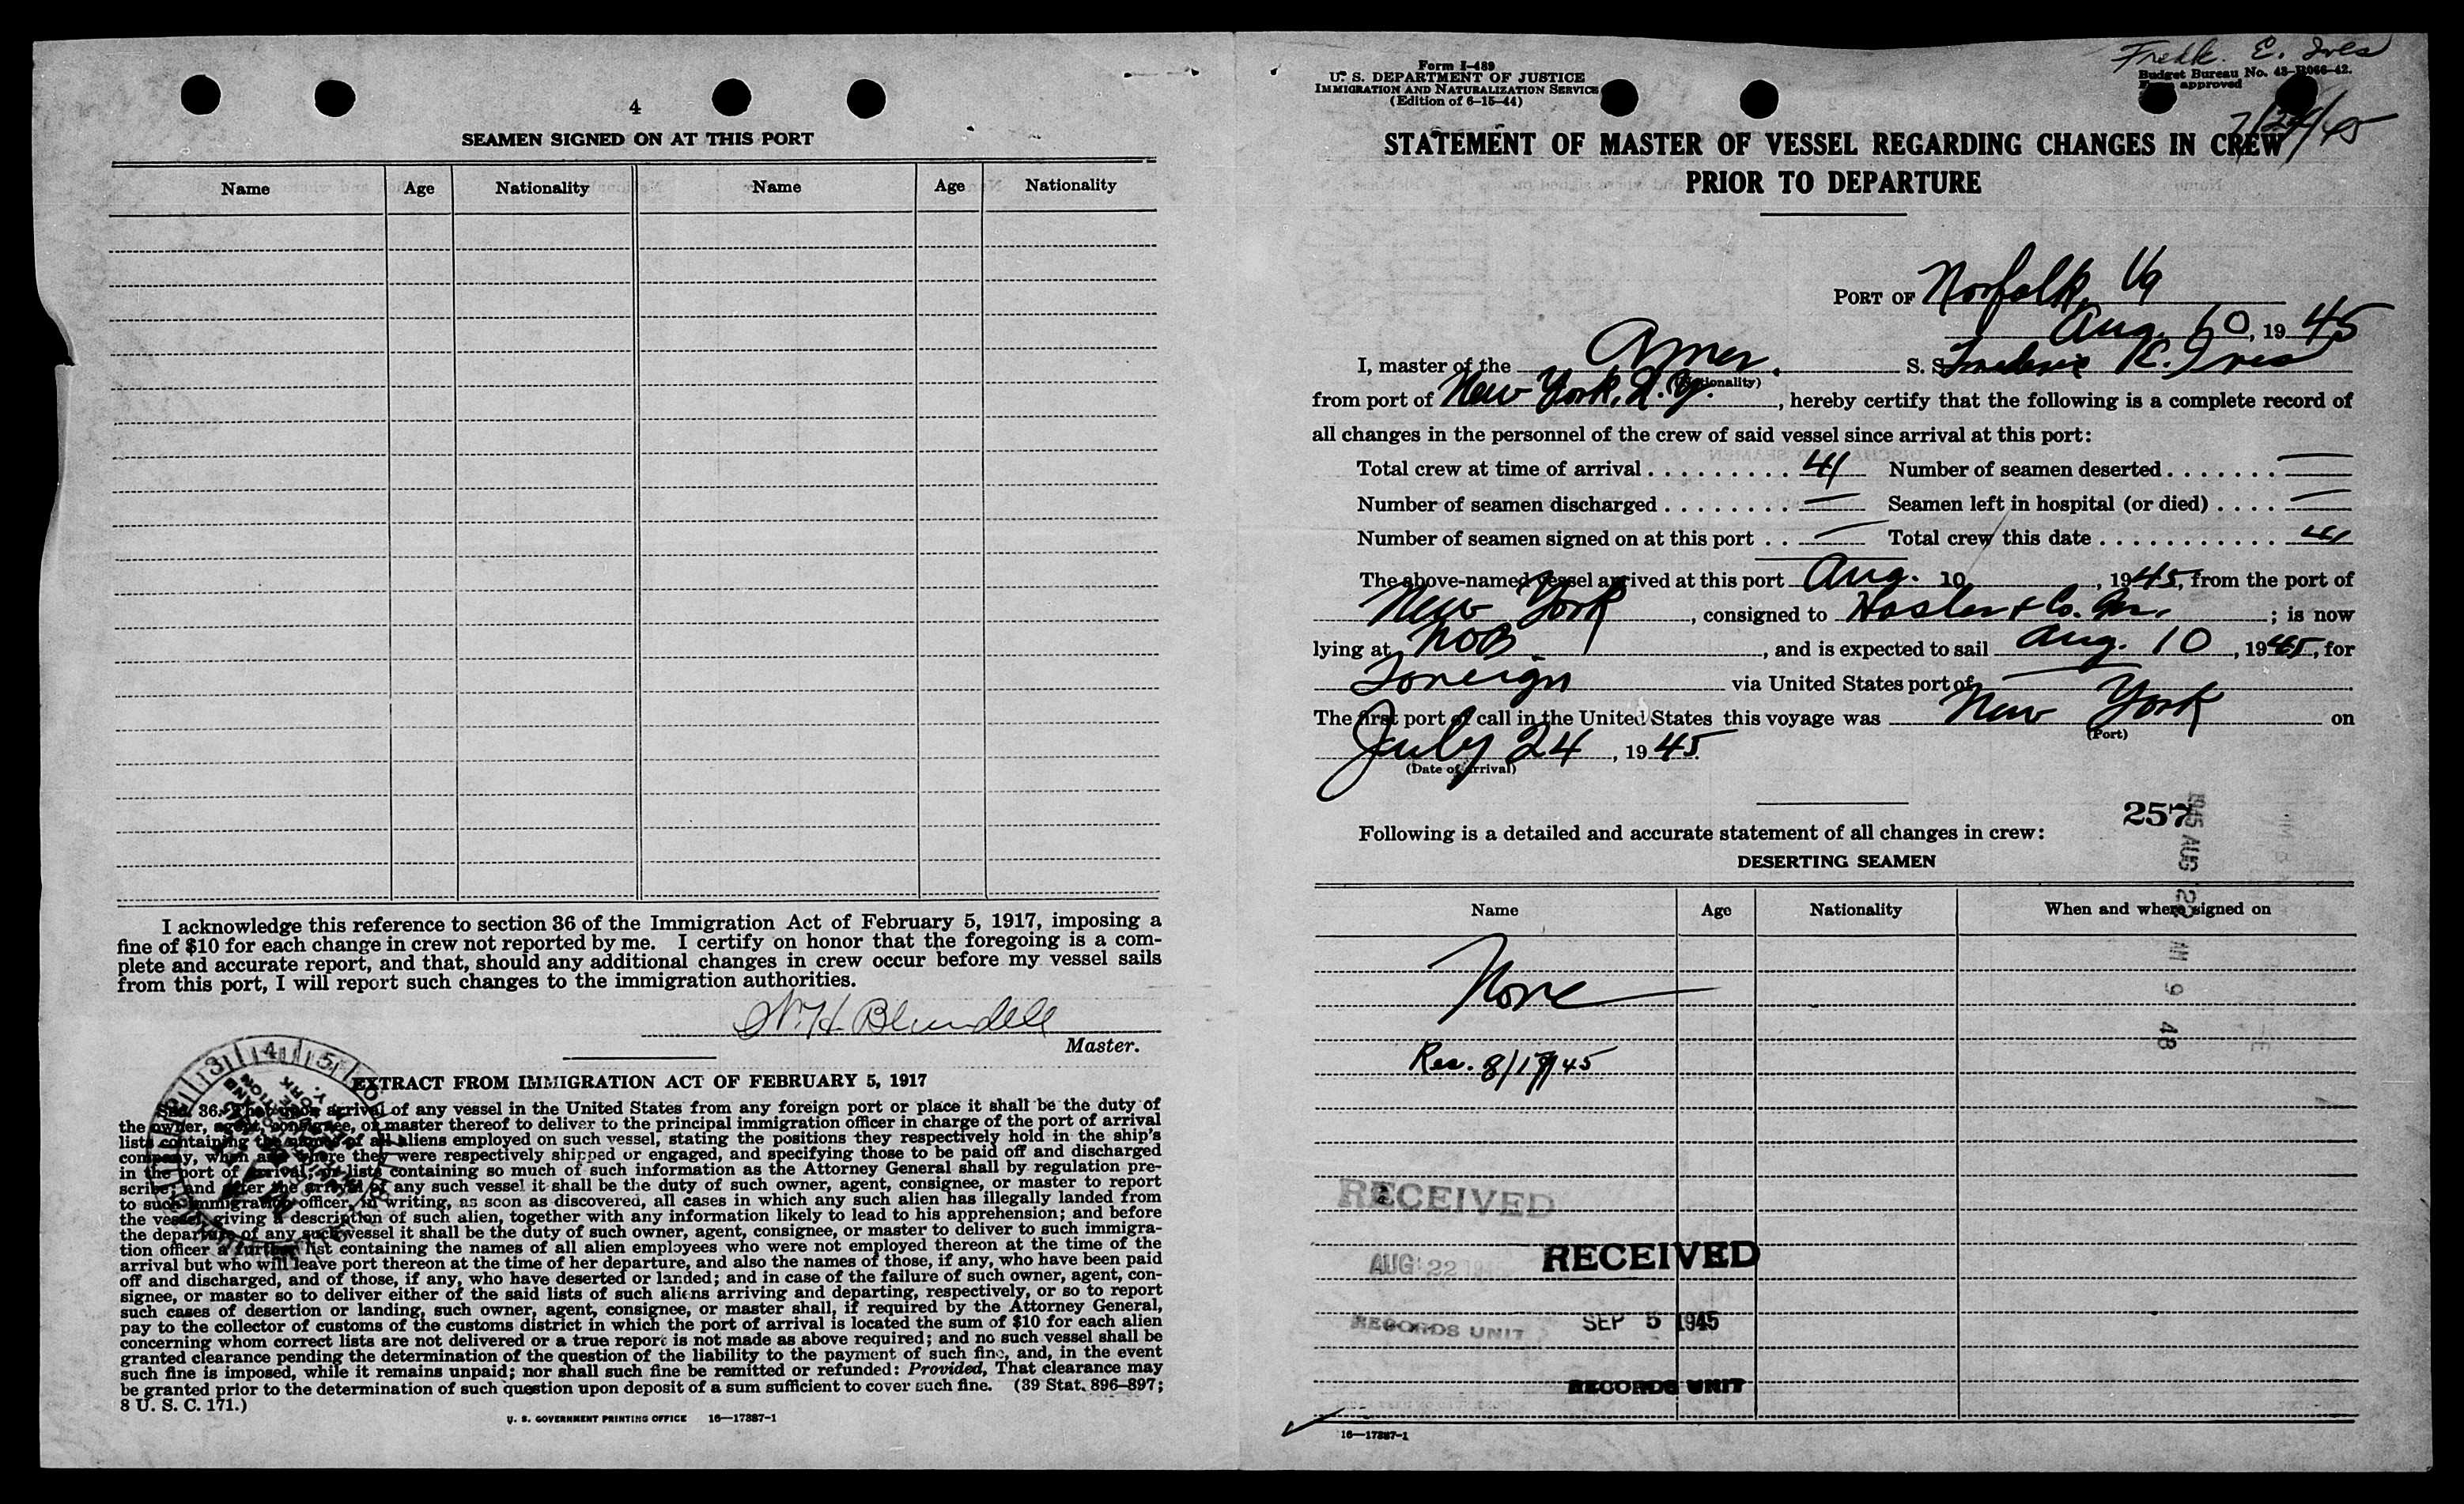 4
SEAMEN SIGNED ON AT THIS PORT
Name Age Nationality Name Age Nationality
I acknowledge this reference to section 36 of the Immigration Act of February 5, 1917, imposing a
fine of $10 for each change in crew not reported by me. I certify on honor that the foregoing is a com-
plete and accurate report, and that, should any additional changes in crew occur before my vessel sails
from this port, I will report such changes to the immigration authorities.
W. H. Blundell
Master.
EXTRACT FROM IMMIGRATION ACT OF FEBRUARY 5, 1917
Sec. 36. That upon arrival of any vessel in the United States from any foreign port or place it shall be the duty of
the owner, agent, consignee, or master thereof to deliver to the principal immigration officer in charge of the port of arrival
lists containing the names of all aliens employed on such vessel, stating the positions they respectively hold in the ship's
company, when and where they were respectively shipped or engaged, and specifying those to be paid off and discharged
in the port of arrival; or lists containing so much of such information as the Attorney General shall by regulation pre-
scribe; and after the arrival of any such vessel it shall be the duty of such owner, agent, consignee, or master to report
to such immigration officer, in writing, as soon as discovered, all cases in which any such alien has illegally landed from
the vessel, giving a description of such alien, together with any information likely to lead to his apprehension; and before
the departure of any such vessel it shall be the duty of such owner, agent, consignee, or master to deliver to such immigra-
tion officer a further list containing the names of all alien employees who were not employed thereon at the time of the
arrival but who will leave port thereon at the time of her departure, and also the names of those, if any, who have been paid
off and discharged, and of those, if any, who have deserted or landed; and in case of the failure of such owner, agent, con-
signee, or master so to deliver either of the said lists of such aliens arriving and departing, respectively, or so to report
such cases of desertion or landing, such owner, agent, consignee, or master shall, if required by the Attorney General,
pay to the collector of customs of the customs district in which the port of arrival is located the sum of $10 for each alien
concerning whom correct lists are not delivered or a true report is not made as above required; and no such vessel shall be
granted clearance pending the determination of the question of the liability to the payment of such fine, and, in the event
such fine is imposed, while it remains unpaid; nor shall such fine be remitted or refunded: Provided, That clearance may
be granted prior to the determination of such question upon deposit of a sum sufficient to cover such fine. (39 Stat. 896–897;
8 U. S. C. 171.)
U. S. GOVERNMENT PRINTING OFFICE 16—17387-1
Form I-489
U. S. DEPARTMENT OF JUSTICE
IMMIGRATION AND NATURALIZATION SERVICE
(Edition of 6-15-44)
Fredk. E. Ives
Budget Bureau No. 43-R066-42.
approved
7/24/45
STATEMENT OF MASTER OF VESSEL REGARDING CHANGES IN CREW
PRIOR TO DEPARTURE
PORT OF Norfolk, Va
Aug. 10, 1945
I, master of the Amer. S. S. E. Ives
(Nationality)
from port of New York, N. Y., hereby certify that the following is a complete record of
all changes in the personnel of the crew of said vessel since arrival at this port:
Total crew at time of arrival 41 Number of seamen deserted —
Number of seamen discharged — Seamen left in hospital (or died) —
Number of seamen signed on at this port — Total crew this date 41
The above-named vessel arrived at this port Aug. 10, 1945, from the port of
New York, consigned to Hasler & Co. ; is now
lying at NOB, and is expected to sail Aug. 10, 1945, for
Foreign via United States port of —
The first port of call in the United States this voyage was New York on
(Port)
July 24, 1945
(Date of arrival)
257
1945 AUG 22 AM 9 48
Following is a detailed and accurate statement of all changes in crew:
DESERTING SEAMEN
Name Age Nationality When and where signed on
None
Rec. 8/17/45
RECEIVED
AUG 22 1945
RECORDS UNIT
RECEIVED
SEP 5 1945
RECORDS UNIT
16—17387-1